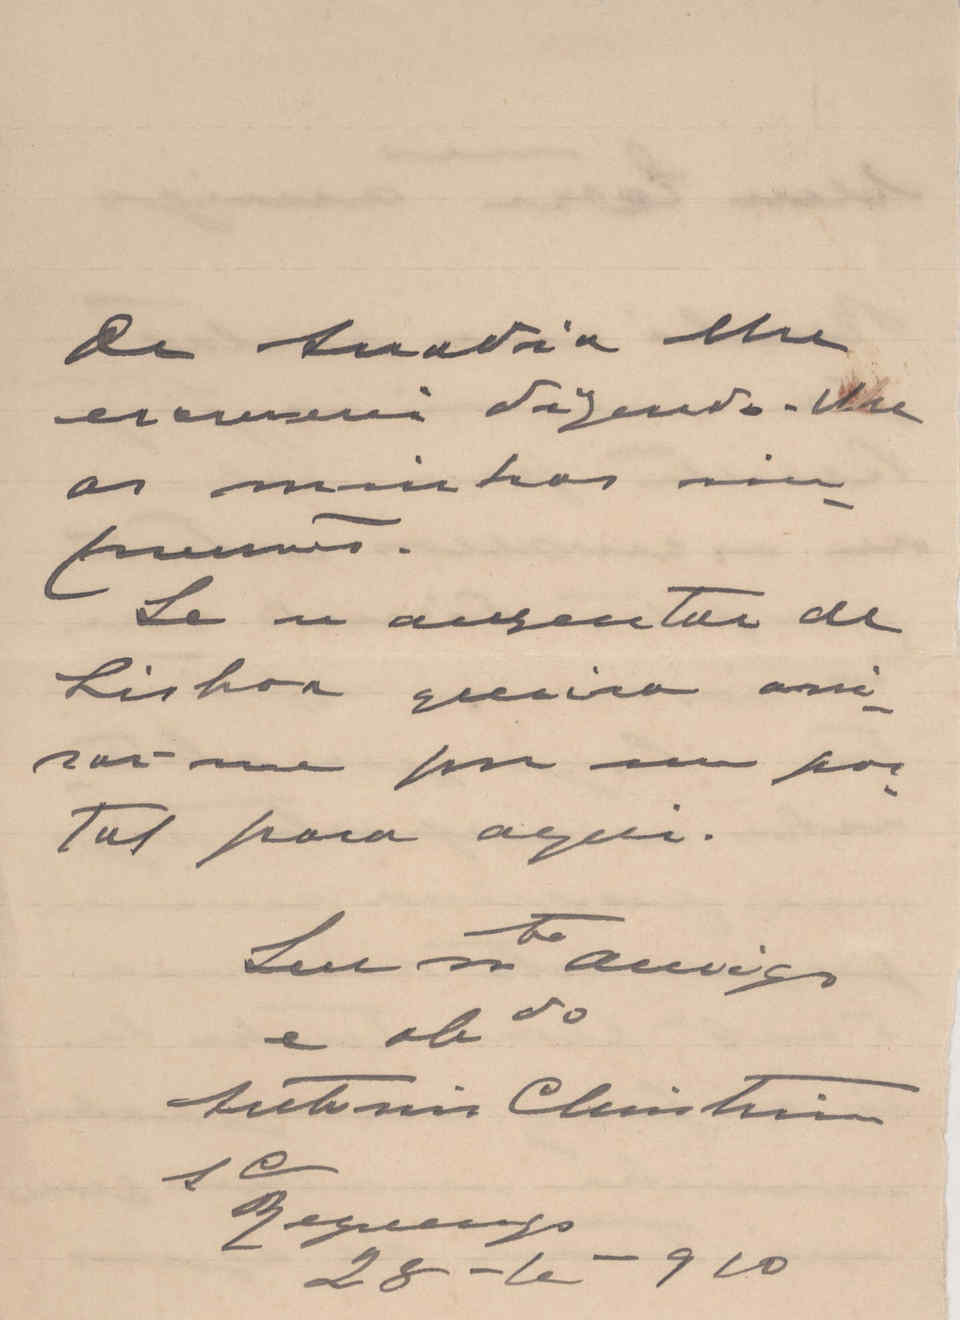 De Anadia lhe
escreverei dizendo-lhe
as minhas im-
pressões.
Se se ausentar de
Lisboa queira avi-
sar-me por um pos-
tal para aqui.
Seu mto amigo
e obdo
Antonio Christino
s c
Reguengo
28-6-910